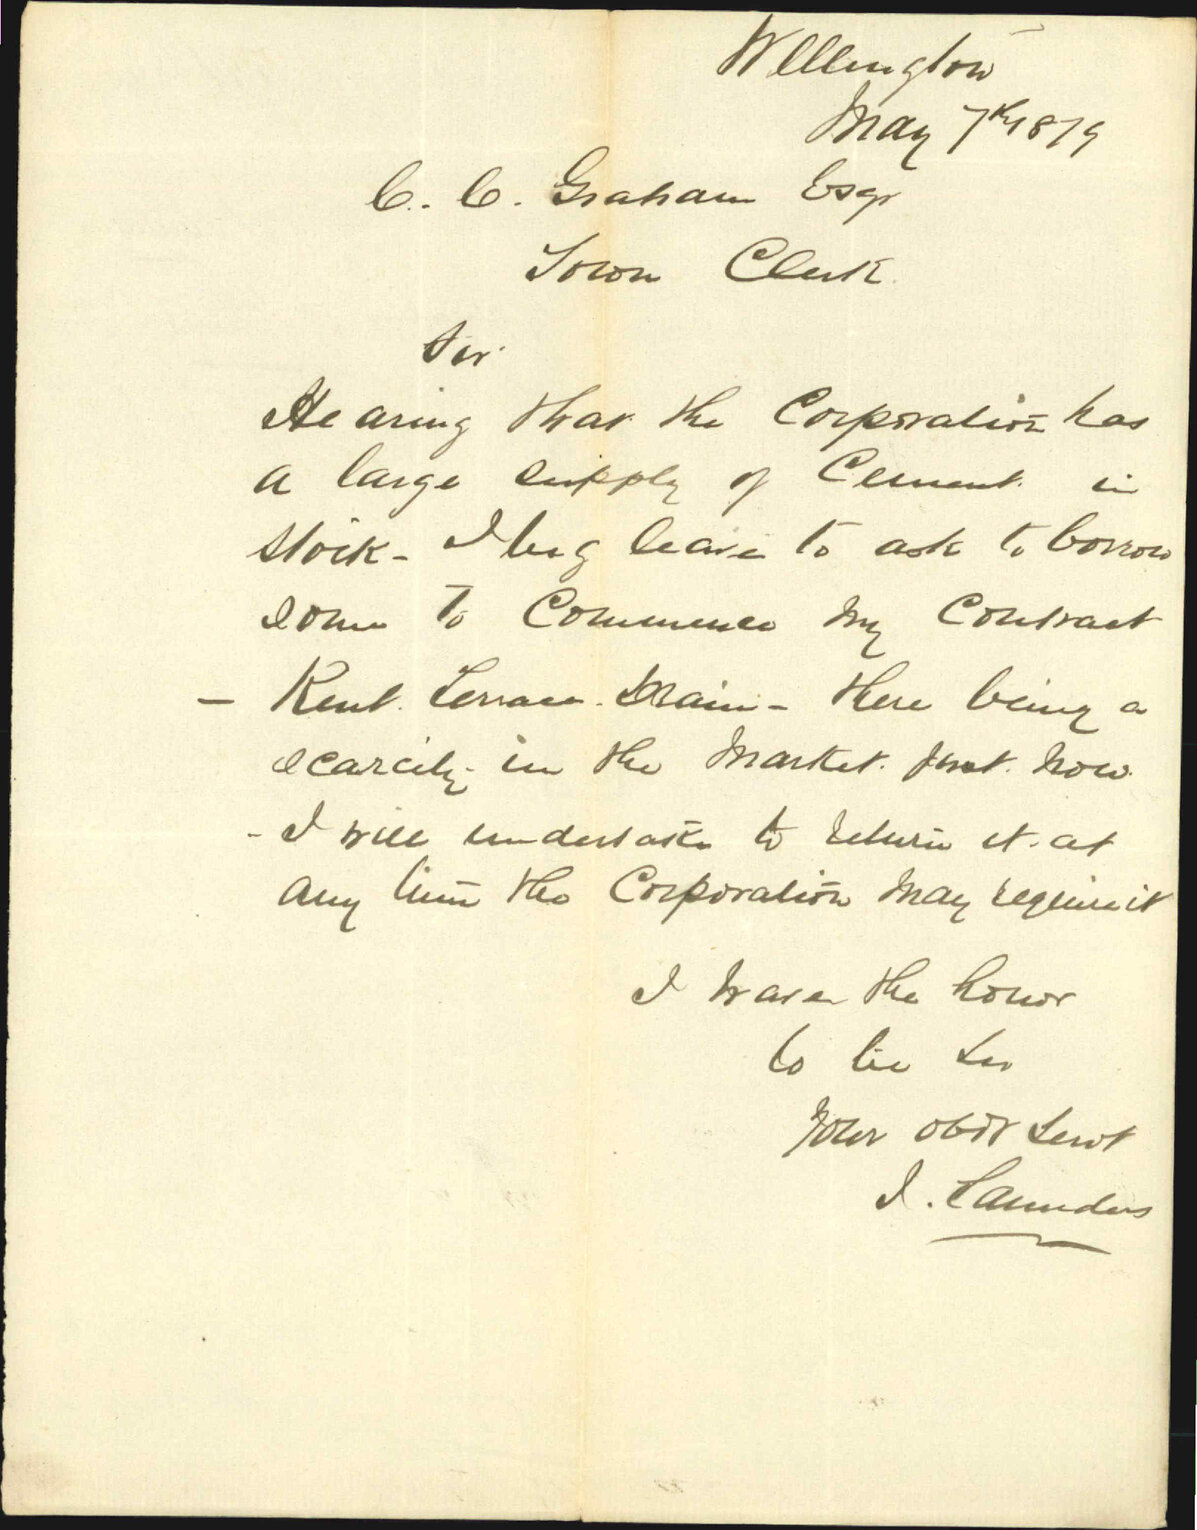 Wellington
May 7th 1879
C. C. Graham Esqr
Town Clerk
Sir
Hearing that the Corporation has
a large supply of Cement in
stock - I beg leave to ask to borrow
some to Commence my Contract
- Kent Terrace Drain - there being a
scarcity in the Market just now
- I will undertake to return it at
any time the Corporation may require it
I have the honor
to be Sir
Your obdt Servt
J. Saunders